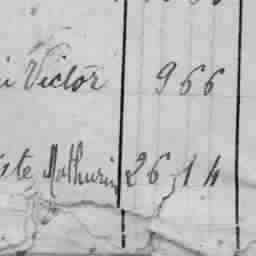 i Victor 966
ste Mathurin 26,14